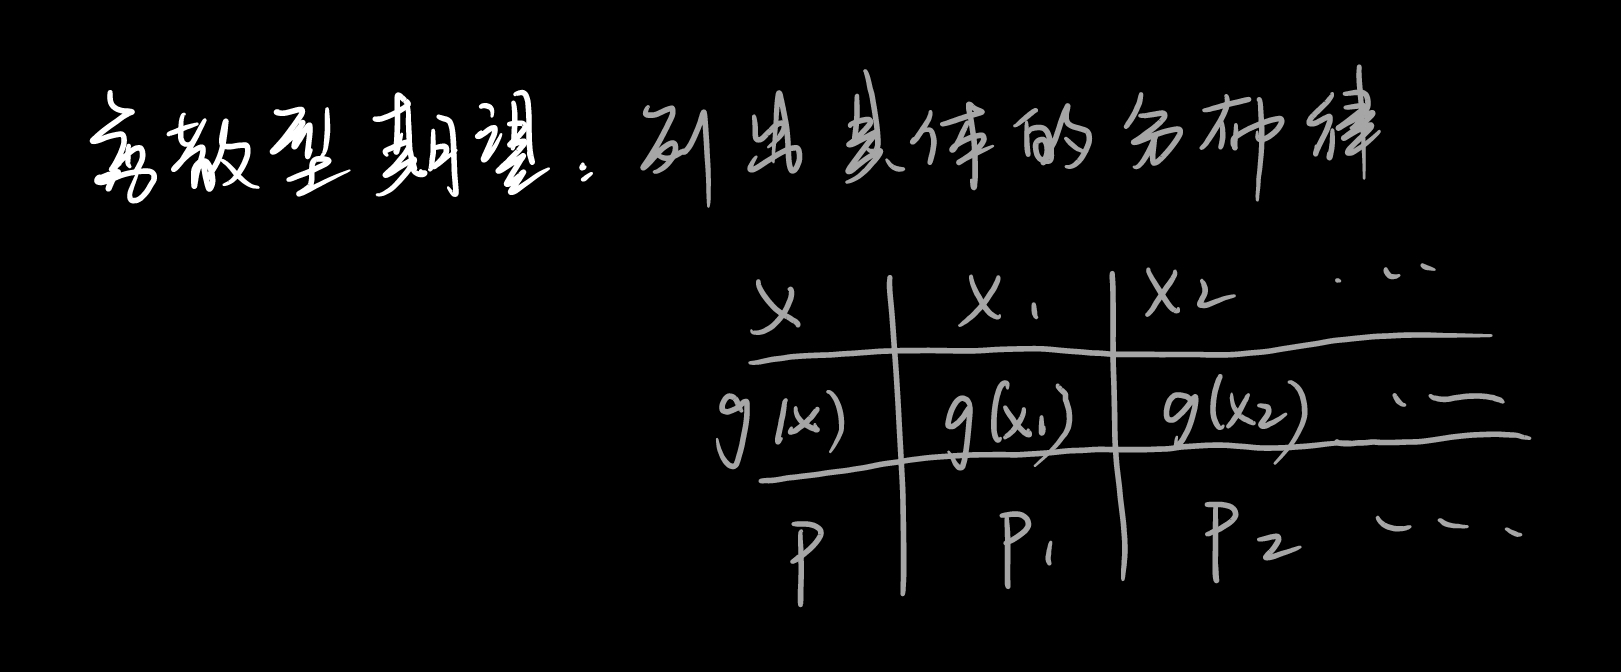 离散型期望：列出具体的分布律
X x₁ x₂ ...
g(x) g(x₁) g(x₂) ...
P P₁ P₂ ...